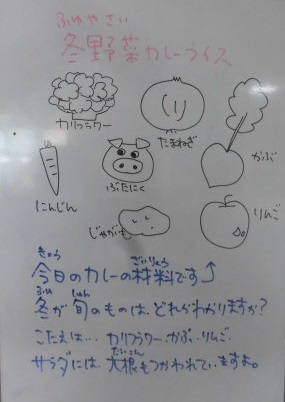 ふゆやさい
冬野菜カレーライス
カリフラワー
たまねぎ
かぶ
にんじん
ぶたにく
じゃがいも
りんご
きょう ざいりょう
今日のカレーの材料です↑
ふゆ しゅん
冬が旬のものは、どれかわかりますか?
こたえは… カリフラワー・かぶ・りんご
だいこん
サラダには、大根もつかわれていますよ。